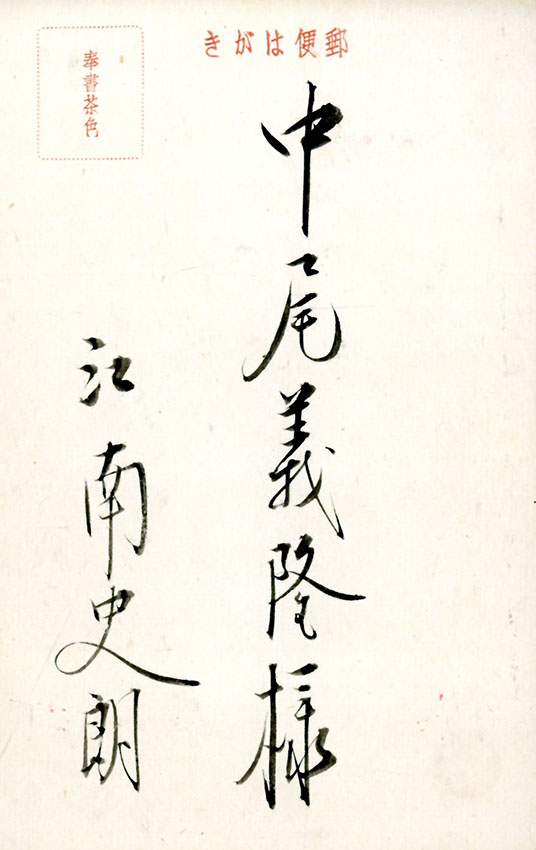 郵便はがき
奉書茶色
中尾義隆様
江南史朗